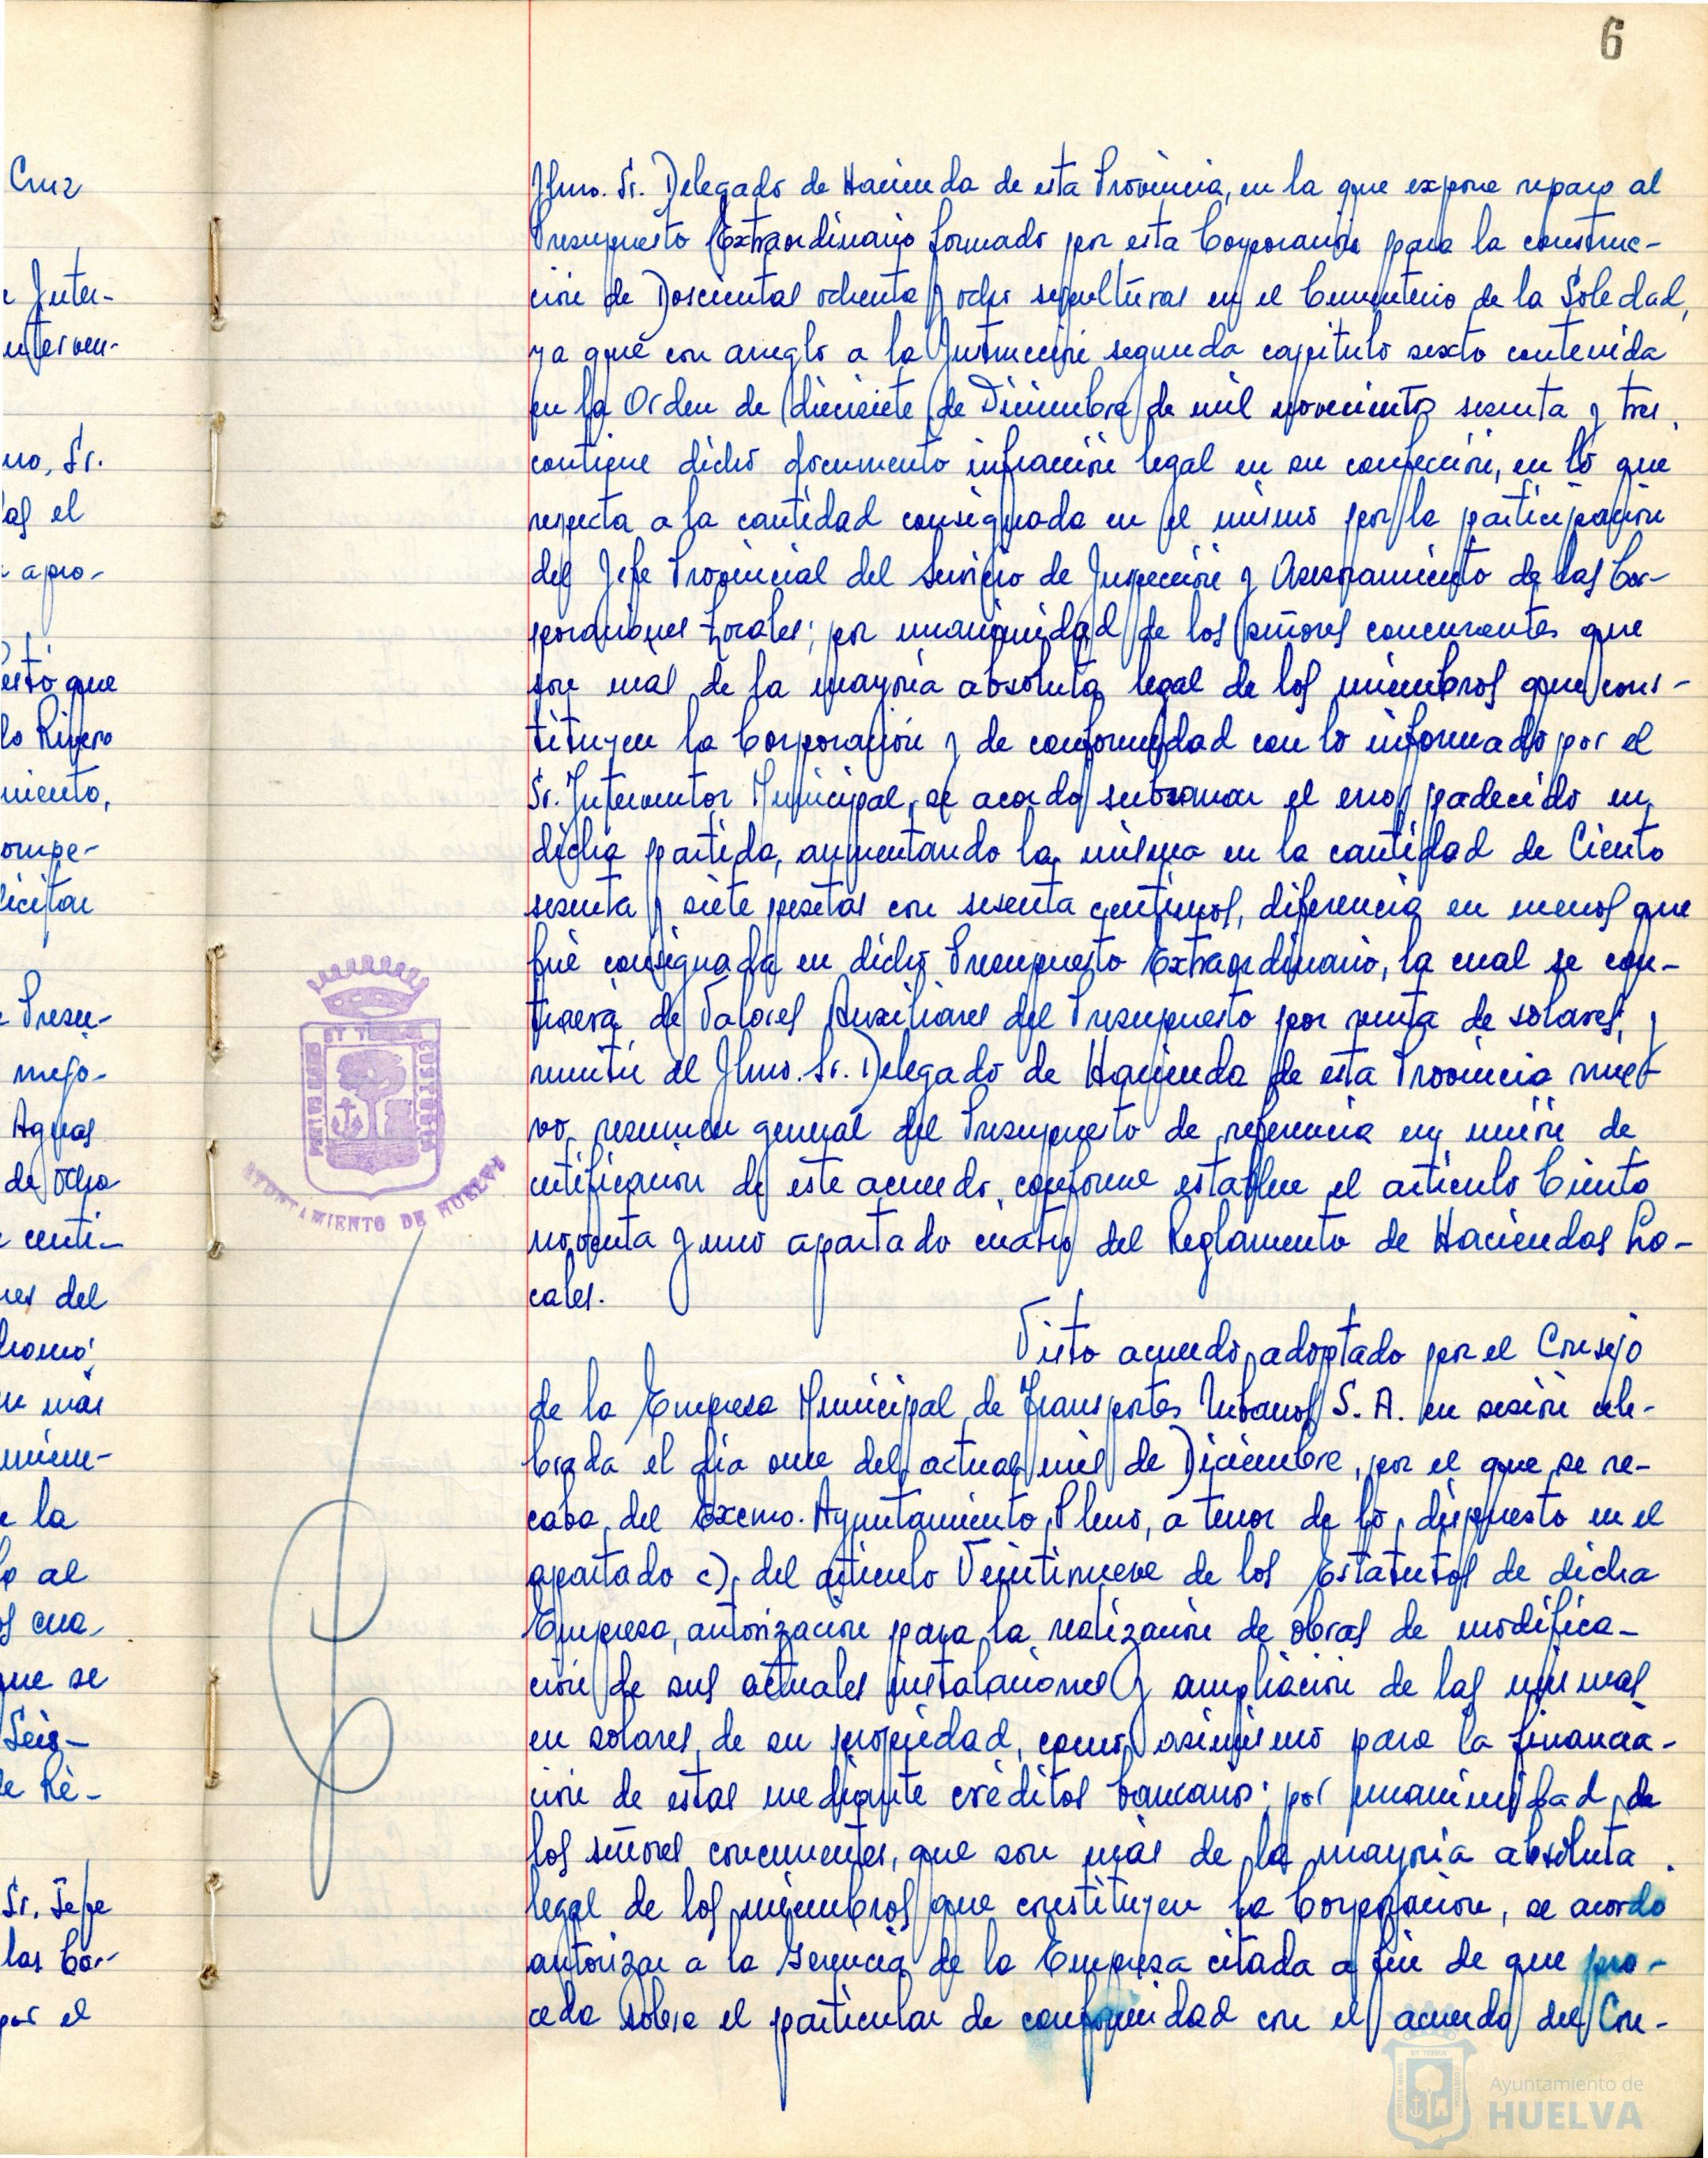 6
Cruz
e Inter-
interven-
no, Sr.
as el
a apro-
esto que
lo Rivero
miento,
ompe-
licitar
e Presu-
mejo-
Aguas
de ocho
centi-
res del
homo'
más
miem-
e la
lo al
os cua-
que se
Seis-
de Ré-
Sr. Jefe
las Cor-
por el
Ilmo. Sr. Delegado de Hacienda de esta Provincia, en la que expone reparo al
Presupuesto Extraordinario formado por esta Corporación para la construc-
ción de Doscientas ochenta y ocho sepulturas en el Cementerio de la Soledad,
ya que con arreglo a la Instrucción segunda capitulo sexto contenida
en la Orden de diecisiete de Diciembre de mil novecientos sesenta y tres,
contiene dicho documento infracción legal en su confección, en lo que
respecta a la cantidad consignada en el mismo por la participación
del Jefe Provincial del Servicio de Inspección y Asesoramiento de las Cor-
poraciones Locales; por unanimidad de los señores concurrentes que
son más de la mayoria absoluta legal de los miembros que cons-
tituyen la Corporación y de conformidad con lo informado por el
Sr. Interventor Municipal, se acordó subsanar el error padecido en
dicha partida, aumentando la misma en la cantidad de Ciento
sesenta y siete pesetas con sesenta centimos, diferencia en menos que
fué consignada en dicho Presupuesto Extraordinario, la cual se con-
traerá de Valores Auxiliares del Presupuesto por venta de solares; y
remitir al Ilmo. Sr. Delegado de Hacienda de esta Provincia nue-
vo resumen general del Presupuesto de referencia en unión de
certificación de este acuerdo, conforme establece el articulo Ciento
noventa y uno apartado cuatro del Reglamento de Haciendas Lo-
cales.
Visto acuerdo adoptado por el Consejo
de la Empresa Municipal de Transportes Urbanos S. A. en sesión cele-
brada el dia once del actual mes de Diciembre, por el que se re-
caba del Excmo. Ayuntamiento Pleno, a tenor de lo dispuesto en el
apartado c), del articulo Veintinueve de los Estatutos de dicha
Empresa, autorización para la realización de obras de modifica-
ción de sus actuales instalaciones y ampliación de las mismas
en solares de su propiedad, como asimismo para la financia-
ción de estas mediante créditos bancarios; por unanimidad de
los señores concurrentes, que son más de la mayoria absoluta
legal de los miembros que constituyen la Corporación, se acordo
autorizar a la Gerencia de la Empresa citada a fin de que pro-
ceda sobre el particular de conformidad con el acuerdo del Con-
PORTUS MARIS ET TERRAE CUSTODIA
AYUNTAMIENTO DE HUELVA
Ayuntamiento de
HUELVA